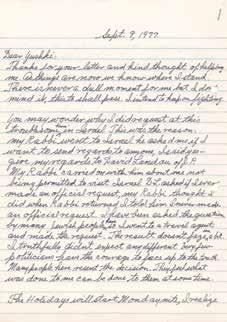 1
Sept. 9, 1977
Dear Yushki:
Thanks for your letter and kind thought of helping
me. As things are now we know where I stand.
There is never a dull moment for me but I do
mind it, this to shall pass. I intend to keep on fighting.
You may wonder why I did request at this
troublesome time in Israel This was the reason.
My Rabbi went to Israel he asked me if I
want to send regards to anyone, I said if so
give my regards to David Landau of J.P.
My Rabbi carried on with him about me not
being permitted to visit Israel. D.L. asked if I ever
made an official request, my Rabbi thought I
did when Rabbi returned I told him I never made
an official request. I have been asked the question
by many Jewish people so I went to a travel agent
and made the request. The result doesn't
I truthfully didn't expect any different. Very few
politicians have the courage to face up to the truth
Many people here resent the decision. They feel what
was done to me can be done to them at some time.
The Holidays will start Monday nite, I realize